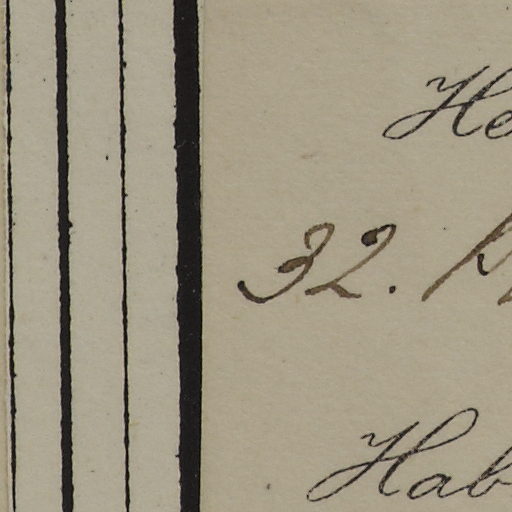 He
32.
Hab